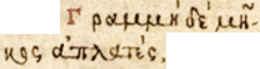 Γραμμὴ δὲ μῆ-
κος ἀπλατές.